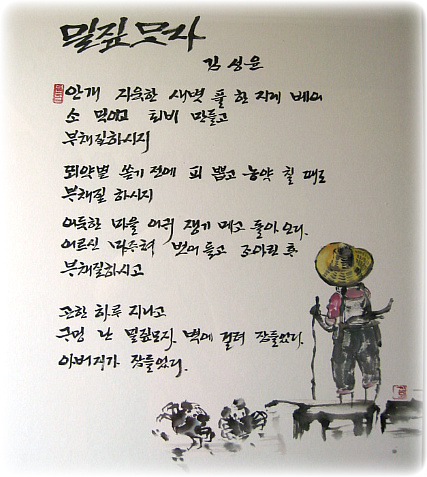 밀짚모자
김 성 윤
안개 자욱한 새벽 풀 한 지게 베어
소 먹이고 퇴비 만들고
부채질하시지
뙤약볕 쏟기 전에 피 뽑고 농약 칠 때도
부채질 하시지
어둑한 마을 어귀 쟁기 메고 돌아 온다.
어르신 마주쳐 벗어 들고 조아린 후
부채질하시고
고한 하루 지나고
구멍 난 밀짚모자. 벽에 걸려 잠들었다.
아버지가 잠들었다.